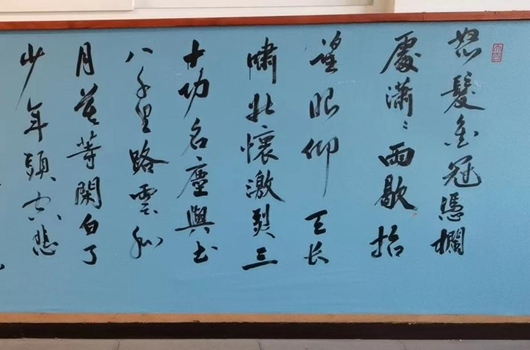 怒髮衝冠憑欄
處瀟々雨歇抬
望眼仰天长
嘯壯懷激烈三
十功名塵與土
八千里路雲和
月莫等閑白了
少年頭空悲